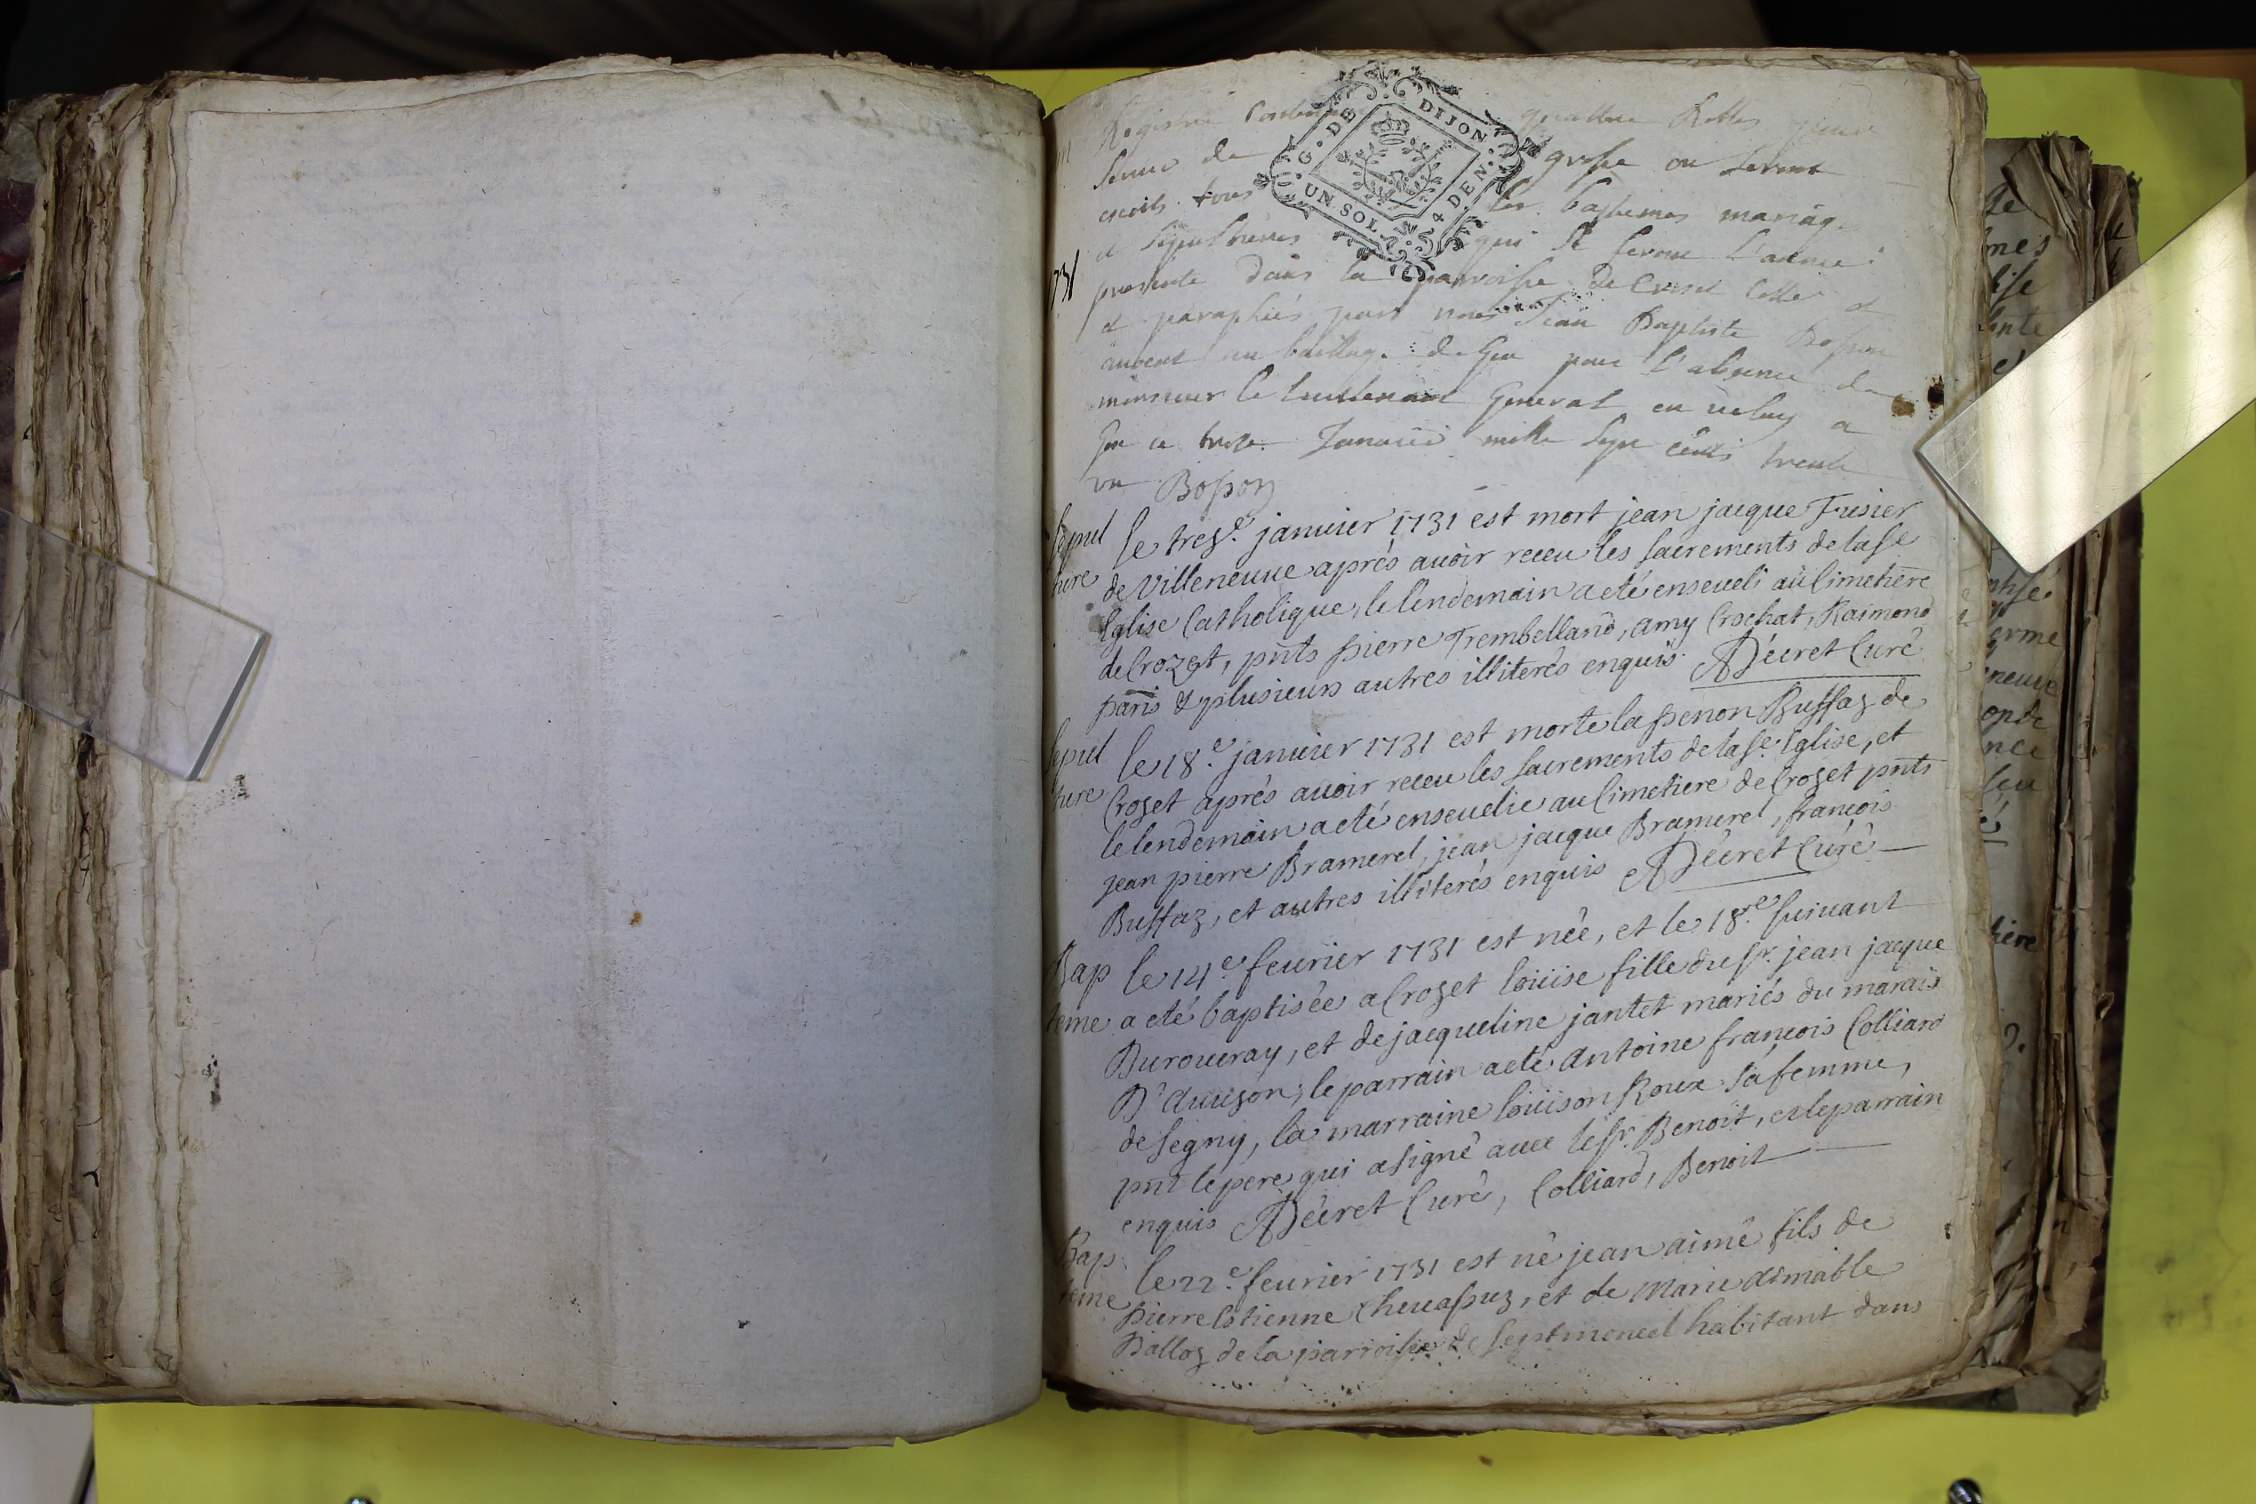 Registre Contenant quattre Rolles
de grosse ou seront
escrits tous les baptemes mariag.
et sepultures qui se feront l'année
1731
presente dans la parroisse de Crozet Cotté et
et paraphés par nous Jean Baptiste Bosson
avocat au bailliag. de Gex pour l'absence de
monsieur le Lieutenant General en a
Gex ce treze Janvier mille sept cents trente
un Bosson
Sepul le trez.e januier 1731 est mort jean jacque Fusier
ture de Villeneuue aprés auoir receu les sacrements de la Ste
Eglise Catholique, le lendemain a eté enseueli au Cimetière
de Crozet, pnts pierre Trembelland, amy Crochat, Raimond
paris & plusieurs autres illiterés enquis. Décret Curé
Sepul le 18.e januier 1731 est morte la penon Buffaz de
ture Crozet aprés auoir receu les sacrements de la Ste Eglise, et
le lendemain a eté enseuelie au Cimetiere de Crozet pnts
jean pierre Bramerel, jean jacque Bramerel, françois
Buffaz, et autres illiterés enquis Décret Curé
Bap le 14.e feurier 1731 est née, et le 18.re suiuant
teme a eté baptisée a Crozet loüise fille du Sr. jean jacque
Duroueray, et de jacqueline jantet mariés du marais
D'auuzon, le parrain a eté Antoine françois Colliard
de Segny, la marraine loüison Roux sa femme,
pnt le pere qui a signé auec le Sr. Benoit, et le parrain
enquis Décret Curé, Colliard, Benoit
Bap le 22.e feurier 1731 est né jean aimé fils de
teme pierre Estienne Cheuassuz, et de Marie aimable
Balloz de la parroisse de Septmoncel habitant dans
G. DE DIJON
UN SOL. 4 DEN.